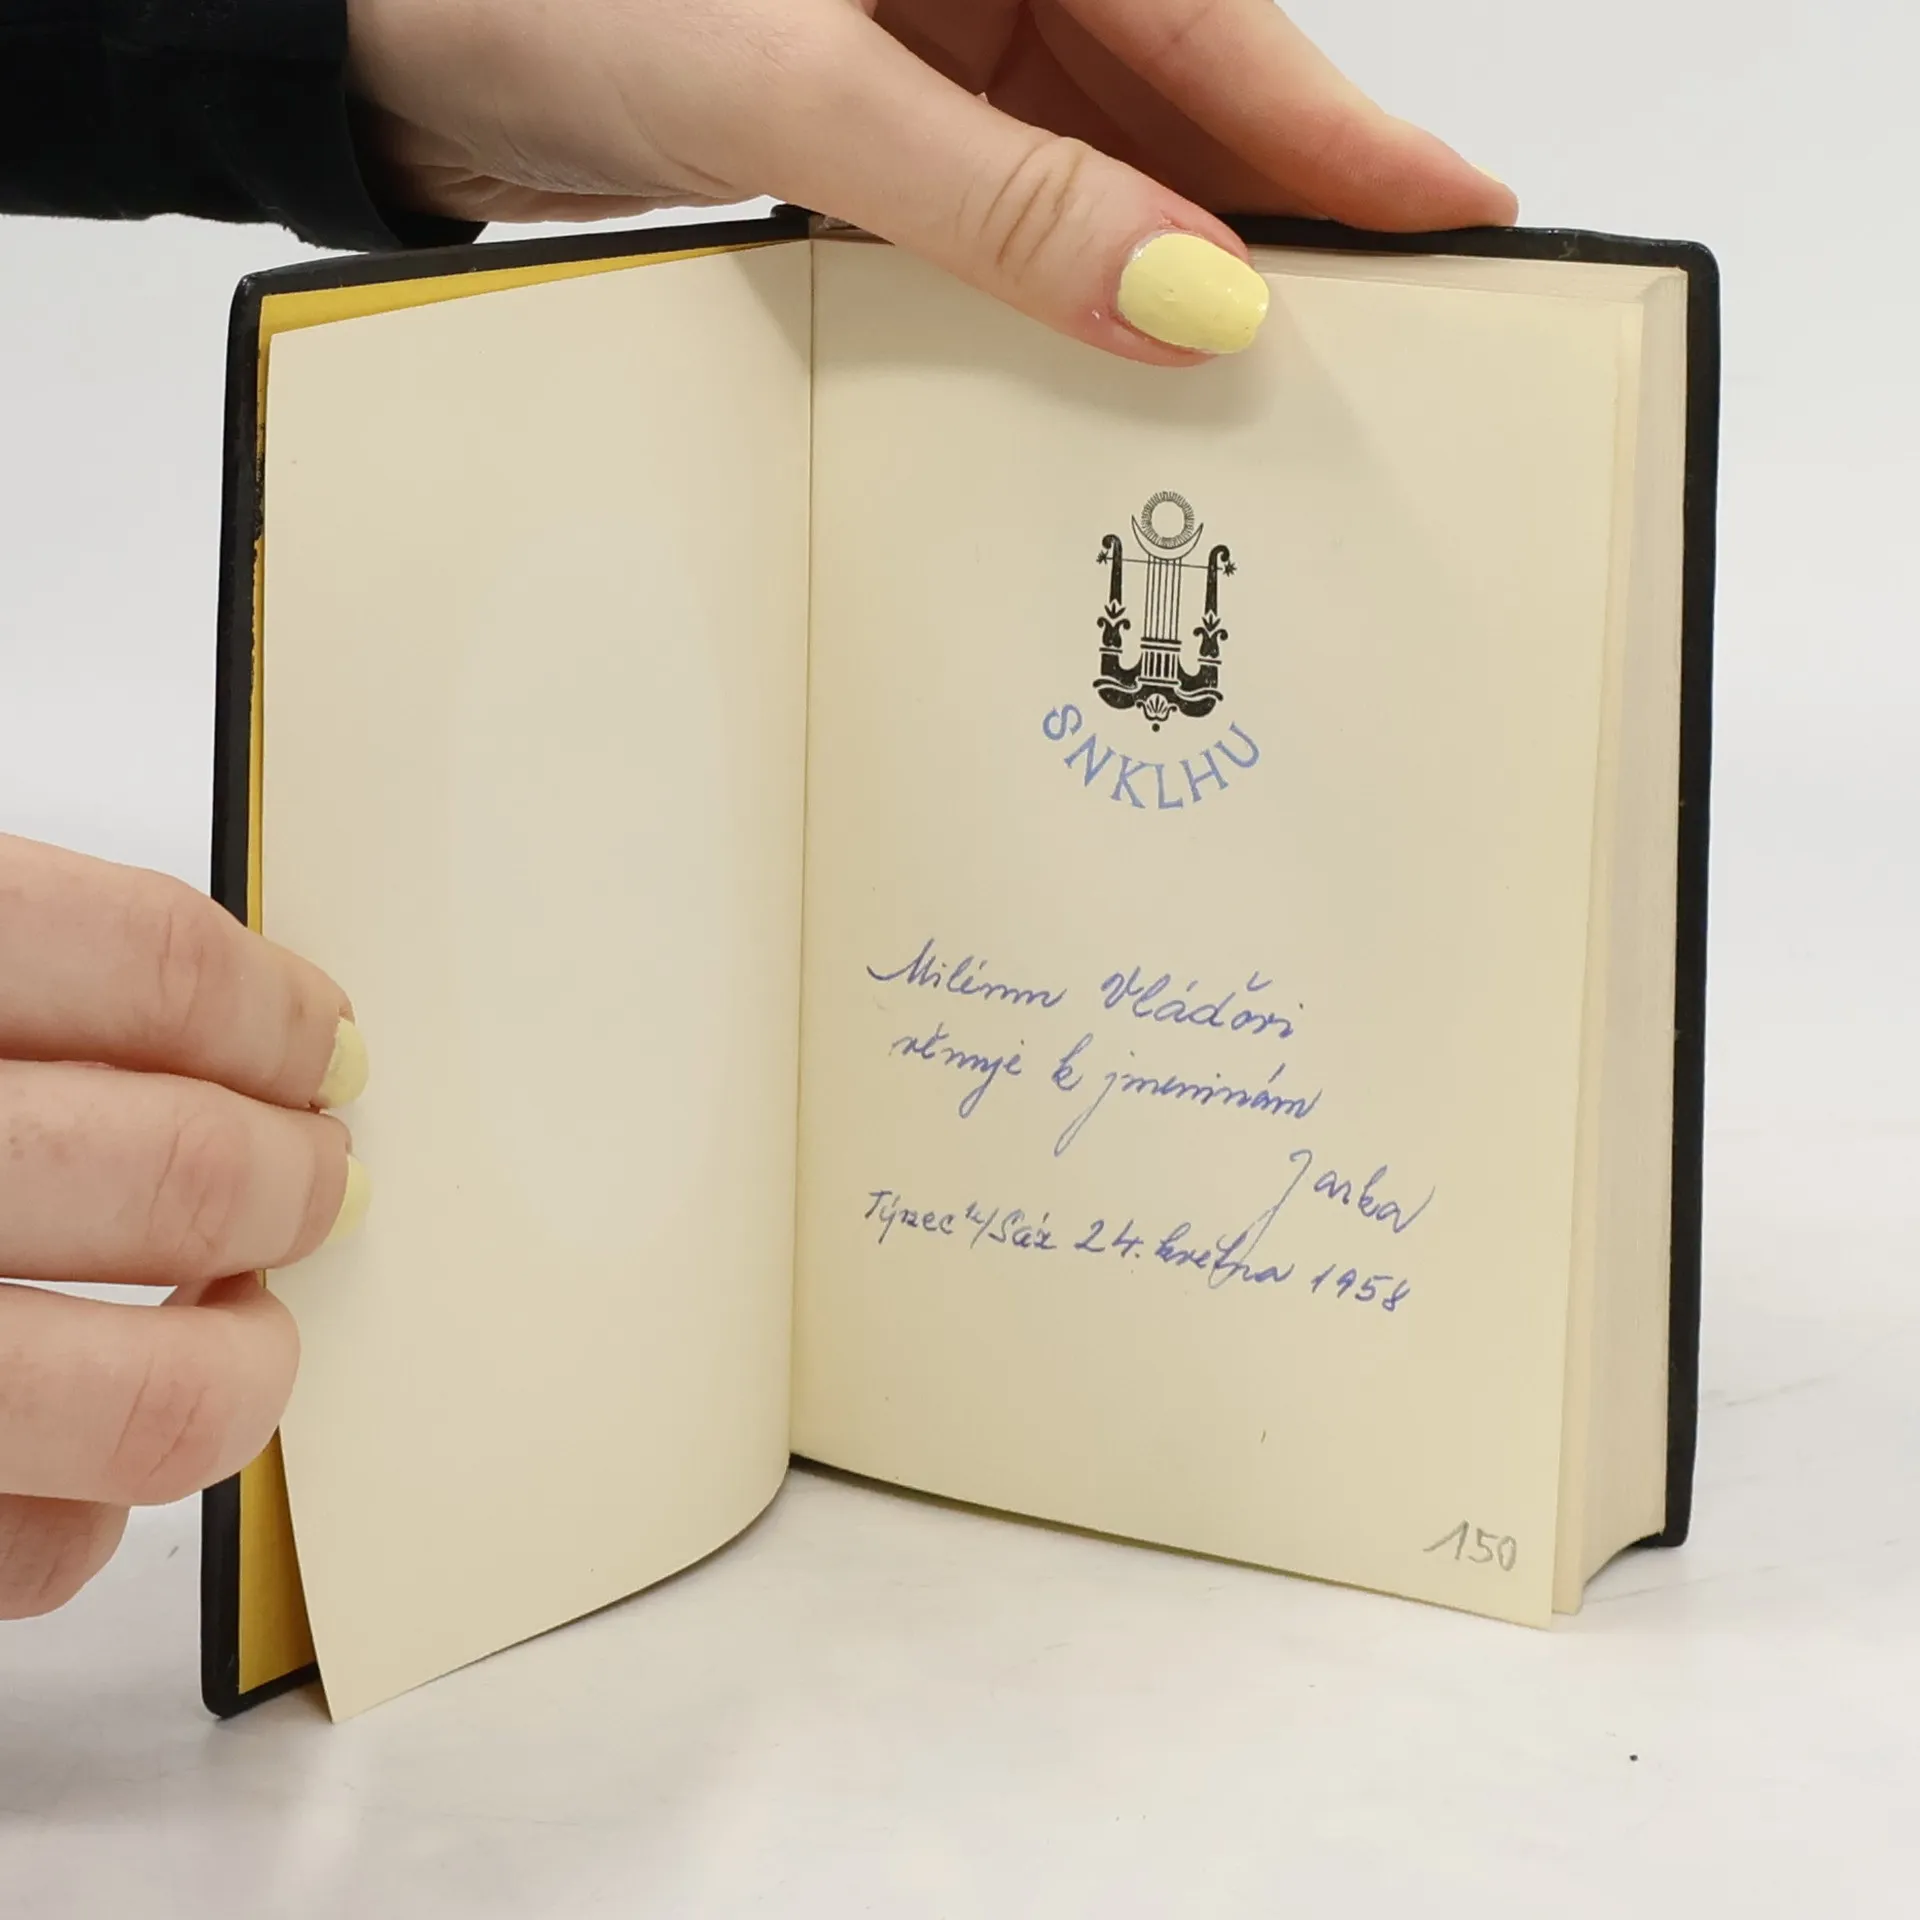 SNKLHU
Milému Vláďovi
věnuje k jmeninám
Jarka
Týnec n/Sáz 24. května 1958
150